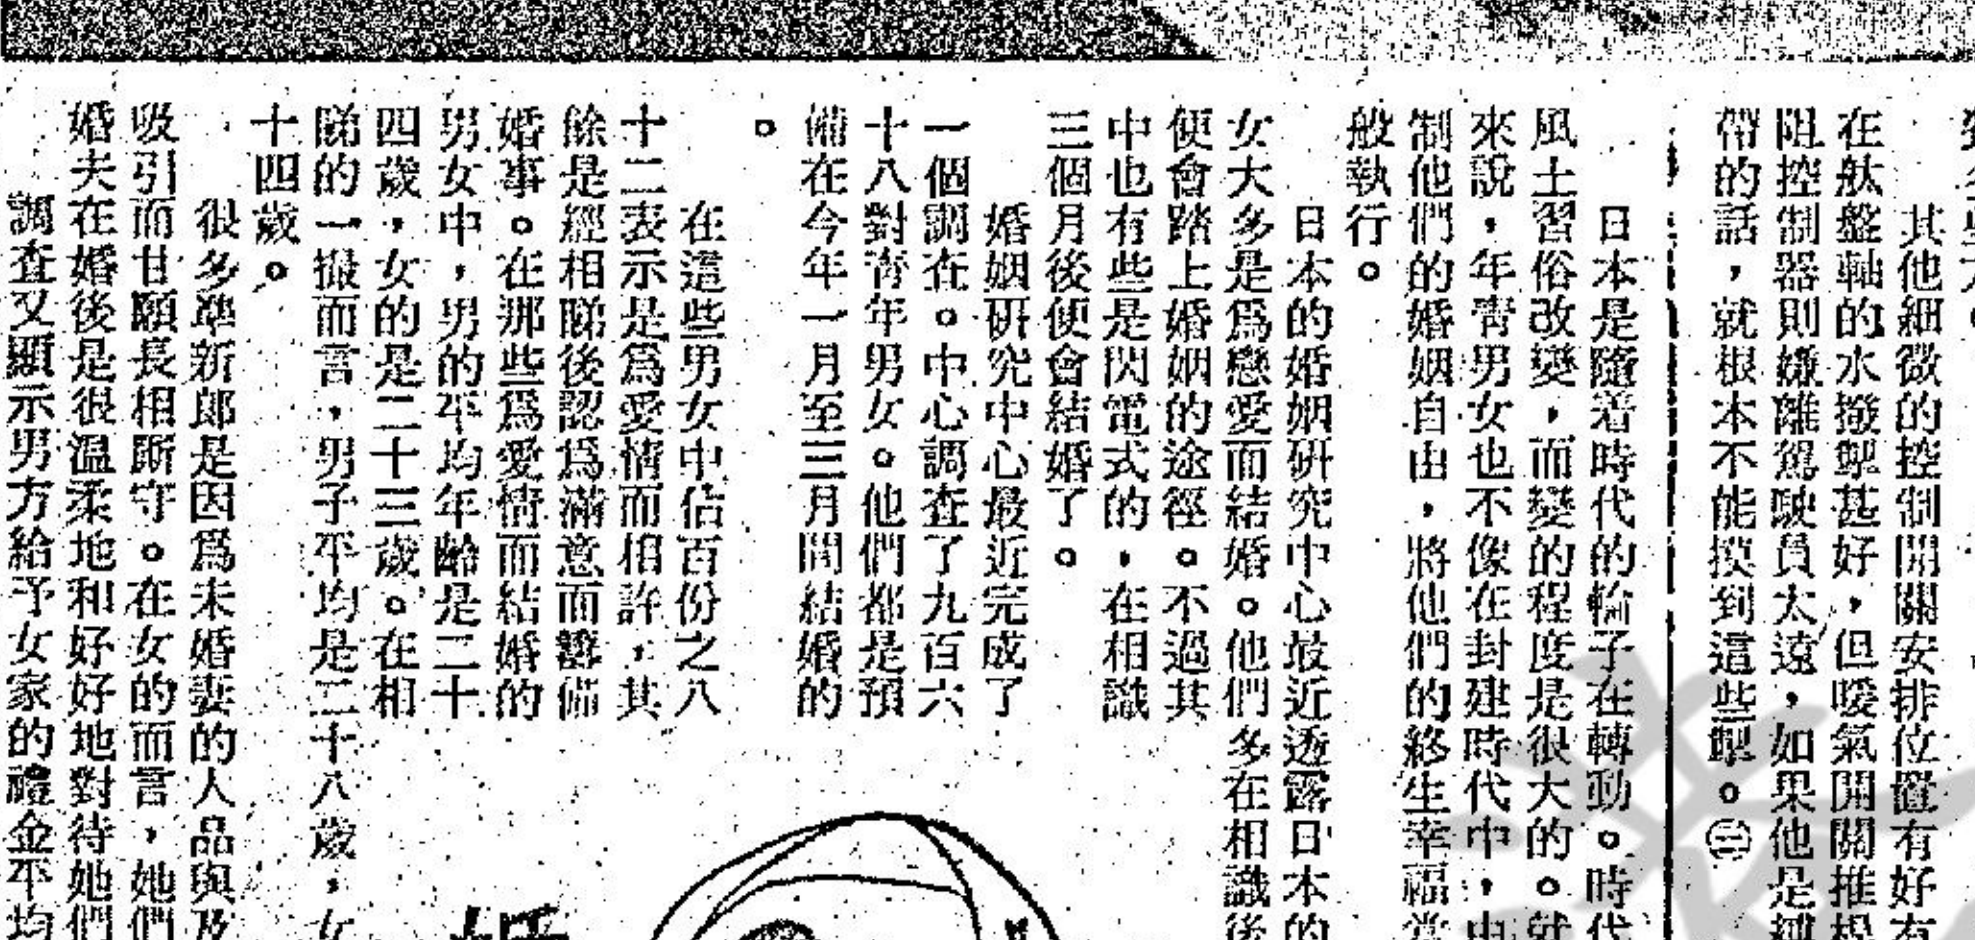 其他細微的控制開關安排位置有好有
在舦盤軸的水撥掣甚好，但暖氣開關推桿
阻控制器則嫌離駕駛員太遠，如果他是縛
帶的話，就根本不能摸到這些掣。㊁
日本是隨着時代的輪子在轉動。時代
風土習俗改變，而變的程度是很大的。就
來說，年青男女也不像在封建時代中，由
制他們的婚姻自由，將他們的終生幸福當
般執行。
日本的婚姻研究中心最近透露日本的
女大多是爲戀愛而結婚。他們多在相識後
便會踏上婚姻的途徑。不過其
中也有些是閃電式的，在相識
三個月後便會結婚了。
婚姻研究中心最近完成了
一個調查。中心調查了九百六
十八對青年男女。他們都是預
備在今年一月至三月間結婚的
。
在這些男女中佔百份之八
十二表示是爲愛情而相許，其
餘是經相睇後認爲滿意而籌備
婚事。在那些爲愛情而結婚的
男女中，男的平均年齡是二十
四歲，女的是二十三歲。在相
睇的一撮而言，男子平均是二十八歲，女
十四歲。
很多準新郎是因爲未婚妻的人品與及
吸引而甘願長相廝守。在女的而言，她們
婚夫在婚後是很溫柔地和好好地對待她們
調查又顯示男方給予女家的禮金平均